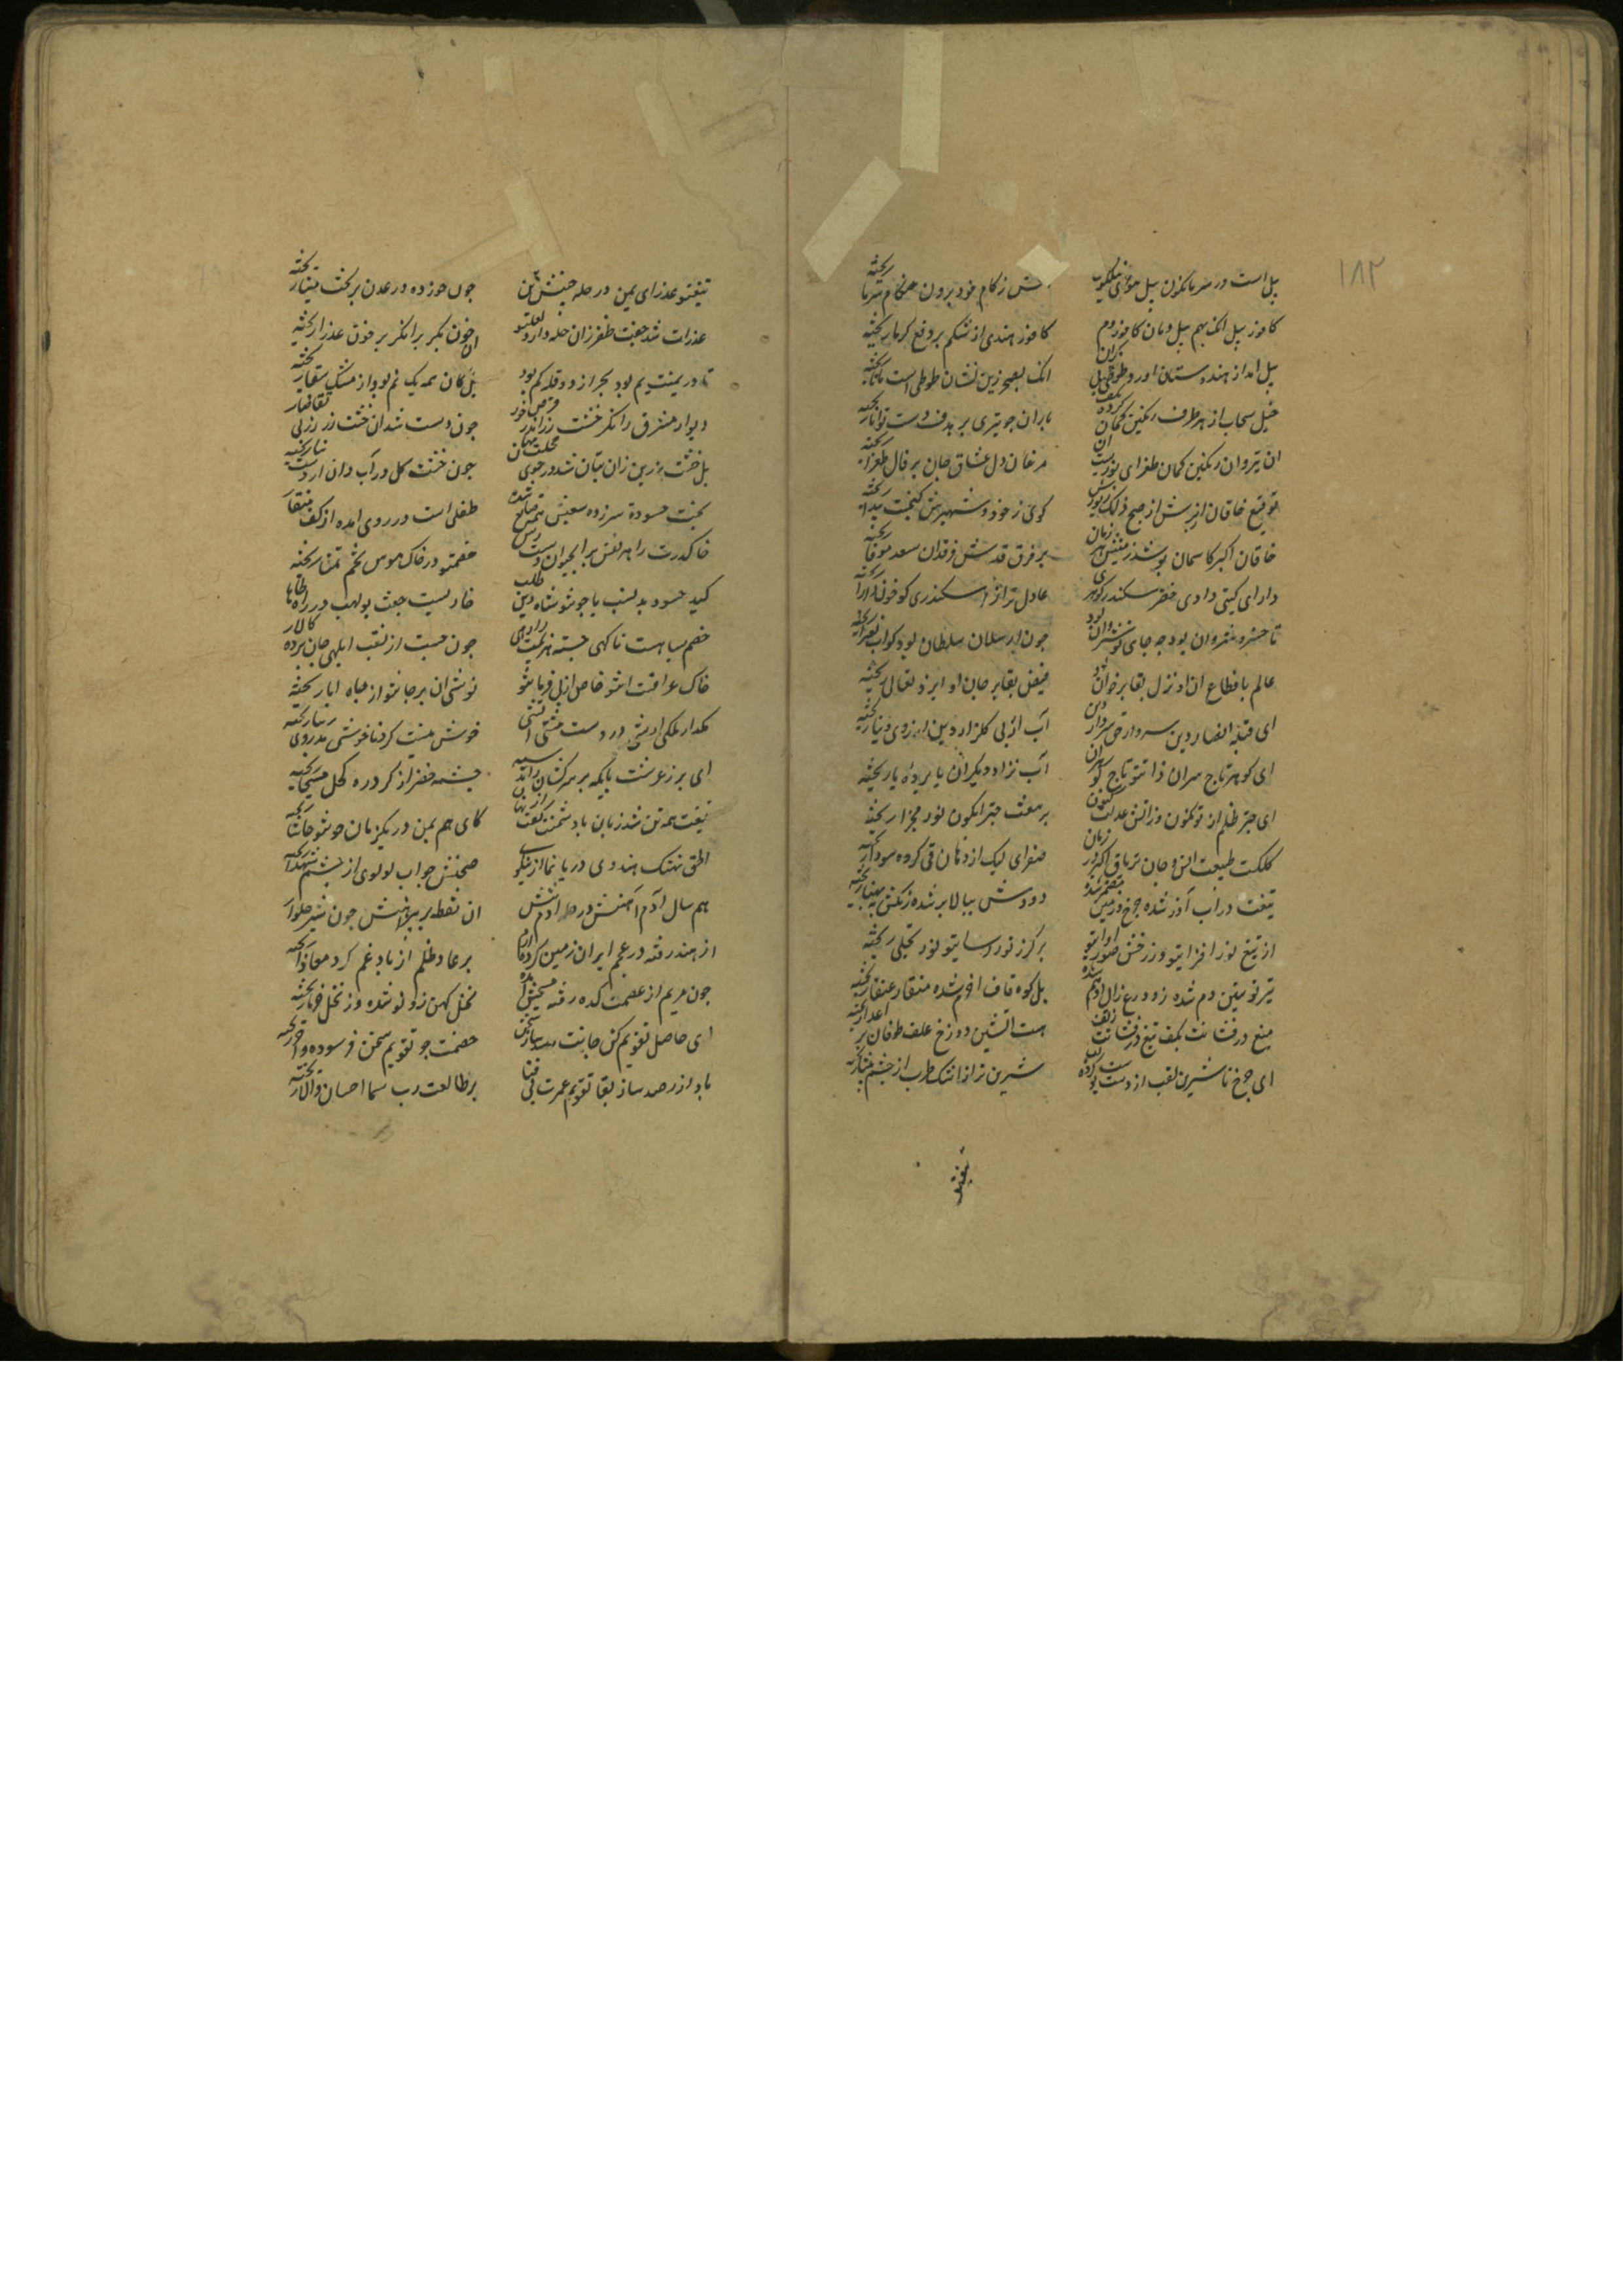 ۱۸۲
پیل است در سرما کنون پیل هوای نیلگون
تش ز کام خود برون هنگام سرما ریخته
کافور پیل انک بهم پیل دمان کافور دم
کافور هندی از شکم بر دفع کرما ریخته
پیل امد از هندوستان اورده طوطی بیکران
انک بصحرا زین نشان طوطی است مانا ریخته
خیل سحاب از هر طرف رنکین کمان کرده بکف
باران چو تیری بر هدف دست توانا ریخته
ان تیر وان رنکین کمان طغرای نوروزیست ان
مرغان دل عشاق جان بر فال طغرا ریخته
توقیع خاقان از برش از صبح ذلک زیورش
کوی ز خود و شهپرش
خاقان اکبر کاسمان بوسد زمینش هر زمان
بر فرق قدرش فرقدان سعد موفا ریخته
دارای کیتی داوری خضر سکندر کوهری
عادل تر از اسکندری کو خون دارا ریخته
تا خسرو شروان بود چه جای نوشروان بود
چون ارسلان سلطان بود کو آب بغرا ریخته
عالم باقطاع ان او نزل بقا بر خوان او
فیض بقا بر جان او ایزد تعالی ریخته
ای قبله انصار دین سردار حق سردار دین
آب از پی کلزار دین از روی دنیا ریخته
ای کوهر تاج سران ذات تو تاج کوهران
آب نژاد دیکران یا برده یا ریخته
ای حبر ظلم از تو نکون وز اتش عدلت کنون
بر هفت حبر ابکون نور مجزا ریخته
کلکت طبیب انس و جان تریاق اکبر در زبان
صفرای لیک از دهان قی کرده سودا ریخته
تیغت در اب آذر شده چرخ و زمین مضمر شده
دودش ببالا بر شده زنکش بپهنا ریخته
از تیغ نور افزای تو وز رخش صور اوای تو
بر کرز نور اسای تو نور تجلی ریخته
تیر تو تنین دم شده زو درع زال از هم شده
بل کوه قاف اخرم شده منقار عنقا ریخته
میغ درفشانت بکف تیغ درفشانت ز تف
هست اتشین دوزخ علف طوفان بر اعدا ریخته
ای چرخ تا شیرین لقب از دست بوده
شیرین تر از اشک طرب از چشم بینا ریخته
تیغ تو
تیغ تو عذرای یمن در حله چینیش تن
چون خورده در عدن برتخت مینا ریخته
عذرات شد جفت ظفر زان حله دارد لعل تر
ان خون بکر بر انکر بر خون عذرا ریخته
تا در یمینت یم بود بحر از دو قله کم بود
بل کان همه یک نم بود از مشک سقا ریخته
دیوار مشرق را نکر خشت زر اندر قرص خور
چون دست شد ان خشت زر زر بی تقاضا ریخته
بل خشت زرین زان بنان شد در جوی خجلت نهان
چون خشت کل در آب دان از دست بنا ریخته
بخت حسود سرزده سعیش همه ضایع شده
طفلی است در روی امده از کف منقا ریخته
خاک درت را هر نفس بر اب حیوان دسترس
خصمت ز در خاک هوس تخم تمنا ریخته
کید حسود بد نسب با چون تو شاه دین طلب
خاریست جفت بولهب در راه طاها ریخته
خصم سیاهت ناکهی جسته هزیمت را رهی
چون جست از نقب ابلهی جان برده کالا ریخته
خاک عراقست ان تو خاص از پی فرمان تو
نوشی ان بر جان تو از جاه ابا ریخته
بکذار ملکی از منشی در دست مشتی اتشی
خوش نیست کرد ناخوشی بر روی زیبا ریخته
ای بر ز عرشت پایکه بر سرکشان رانده سپه
چشمه خضر از کرد ره کحل مسیحا ریخته
تیغت همه تن شد زبان با دشمنت کفت از نهان
کای هم بمن در یکزمان خون تو حاشا ریخته
الحق نهنک هندوی دریا نما از نیکوی
صحنش جواب لولوی از چشم شهلا ریخته
هم سال آدم اهنش در حله ادم تنش
ان نقطه بر پیرامنش چون شیر حلوا ریخته
از هند رفته در عجم ایران زمین کرده ارم
بر عاد ظلم از باد غم کرد معادا ریخته
چون مریم از عصمت کده رفته مسیحش امده
نخل کهن زو نو شده وز نخل خرما ریخته
ای حاصل تقویم کن جانت رصد ساز سخن
خصمت چو تقویم سخن فرسوده و اجزا ریخته
باد از رصد ساز بقا تقویم عمرت بی فنا
بر طالعت رب سما احسان و آلا ریخته